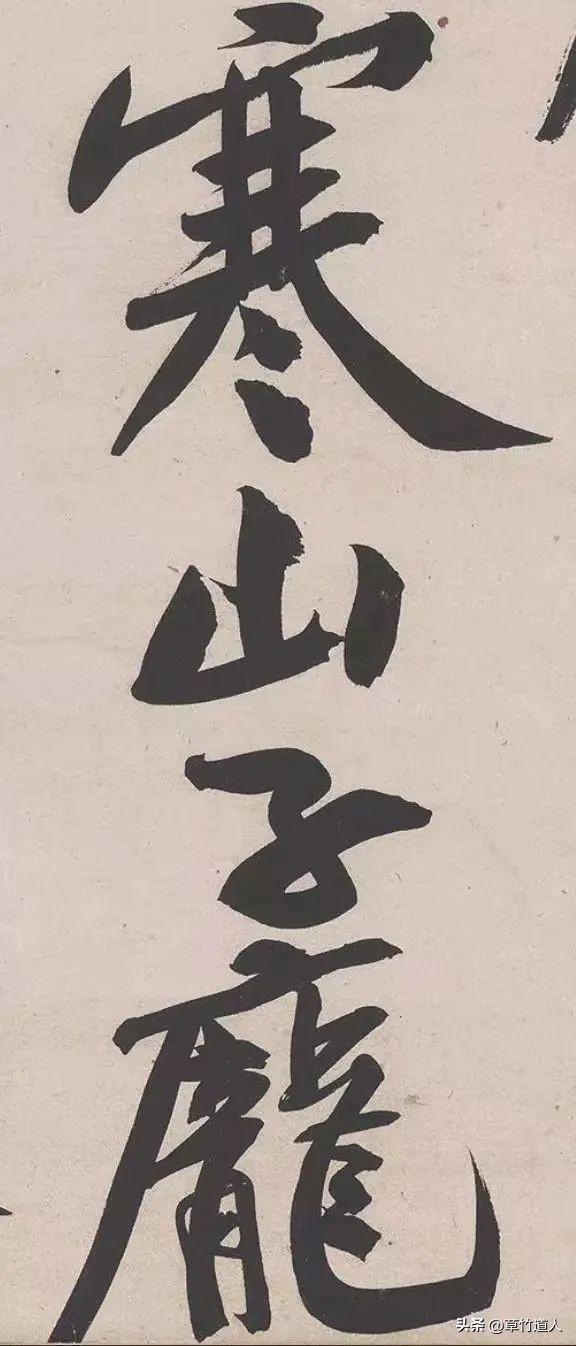 寒山子龐
头条 @草竹道人